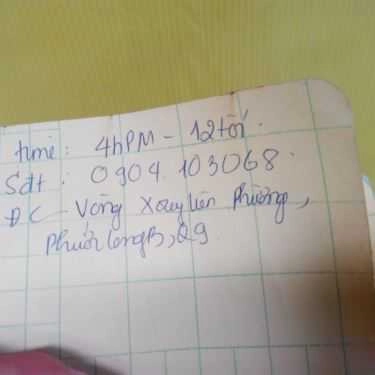 time: 4hPM - 12 tối.
Sdt: 0904.103068.
ĐC - Vòng Xoay Liên Phường,
Phước Long B, Q9